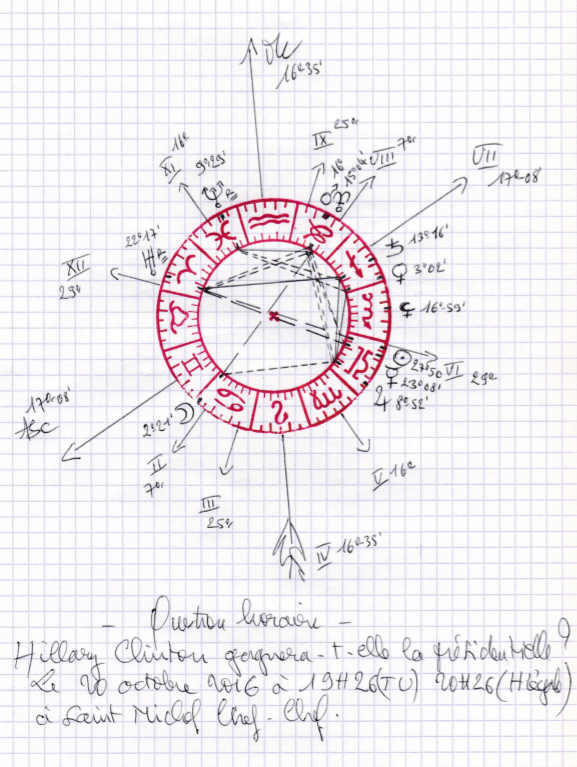 16°35'
IX 25°
XI 16°
9°29'
16°
15°04'
VIII 7°
VII
17°08'
22°17'
XII
29°
13°16'
3°02'
16°59'
27°50
VI 29°
23°08'
8°52'
17°08'
ASC
2°21'
II
7°
III
25°
V 16°
IV 16°35'
- Question horaire -
Hillary Clinton gagnera-t-elle la présidentielle ?
Le 20 octobre 2016 à 19H26(TU) 20H26(H légale)
à Saint Michel Chef-Chef.